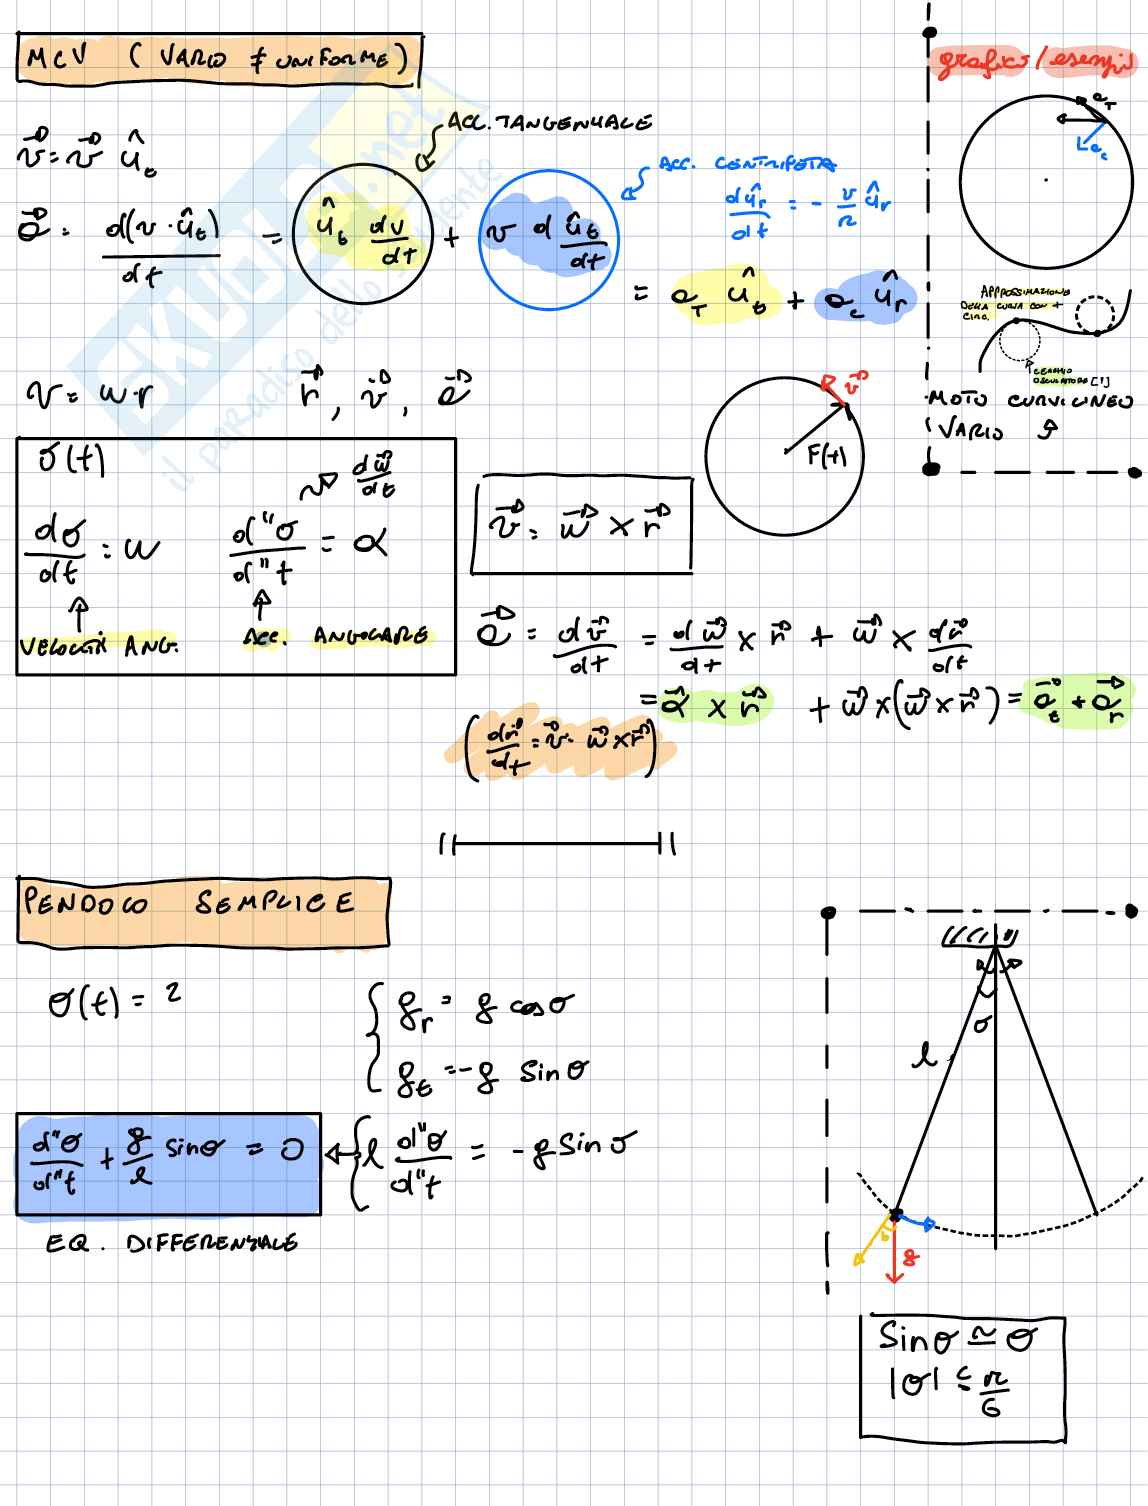 MCV ( VARIO ≠ UNIFORME)
grafico / esempi
ACC. TANGENZIALE
v⃗ = v⃗ û_t
ACC. CENTRIPETA
dû_r/dt = - v/r û_r
a⃗ = d(v · û_t)/dt = û_t dv/dt + v d û_t/dt
= a_T û_t + a_c û_r
a_T
a_c
APPROSSIMAZIONE
DELLA CURVA CON +
CIRC.
CERCHIO
OSCULATORE [!]
MOTO CURVILINEO
VARIO
v = w · r
r⃗, v⃗, a⃗
v⃗
r(t)
σ(t)
dw⃗/dt
dσ/dt = w
d"σ/d"t = α
VELOCITÀ ANG.
ACC. ANGOLARE
v⃗ = w⃗ × r⃗
a⃗ = dv⃗/dt = dw⃗/dt × r⃗ + w⃗ × dr⃗/dt
= α⃗ × r⃗ + w⃗ × (w⃗ × r⃗) = a⃗_t + a⃗_r
(dr⃗/dt = v⃗ = w⃗ × r⃗)
PENDOLO SEMPLICE
σ(t) = ?
g_r = g cos σ
g_t = - g sin σ
d"σ/d"t + g/l sin σ = 0
l d"σ/d"t = - g sin σ
EQ. DIFFERENZIALE
σ
l
g
Sin σ ≃ σ
|σ| ≤ π/6
SKUOLA.net
il paradiso dello studente